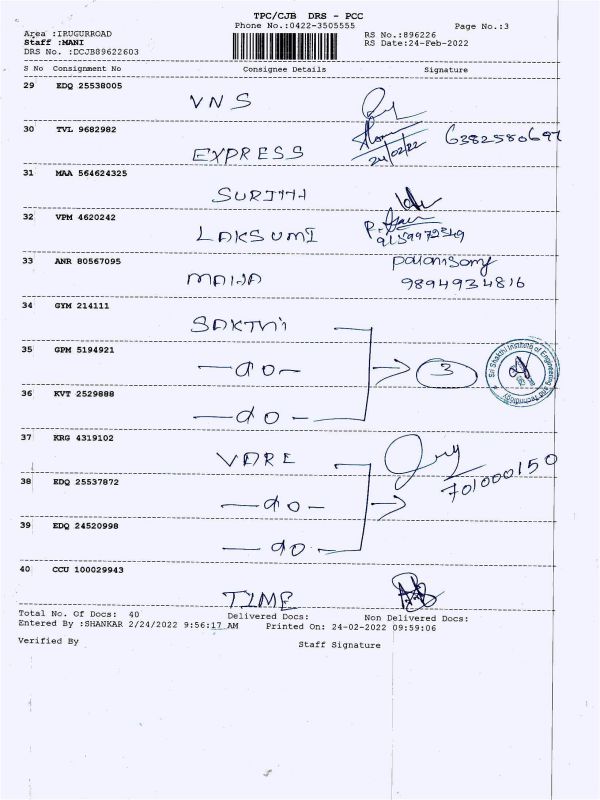 TPC/CJB DRS - PCC
Phone No.:0422-3505555
Page No.:3
Area :IRUGURROAD
Staff :MANI
DRS No. :DCJB89622603
RS No.:896226
RS Date:24-Feb-2022
S No Consignment No Consignee Details Signature
29 EDQ 25538005
VNS
30 TVL 9682982 6382580697
EXPRESS 24/02/22
31 MAA 564624325
SURJITH
32 VPM 4620242
LAKSUMI 9159979349
33 ANR 80567095
9894934816
34 GYM 214111
SAKTHI
35 GPM 5194921
-do- 3
Sri Shakthi Institute of Engineering and Technology
36 KVT 2529888
-do-
37 KRG 4319102
VARE
701000150
38 EDQ 25537872
-do-
39 EDQ 24520998
-do-
40 CCU 100029943
TIME
Total No. Of Docs: 40 Delivered Docs: Non Delivered Docs:
Entered By :SHANKAR 2/24/2022 9:56:17 AM Printed On: 24-02-2022 09:59:06
Verified By Staff Signature